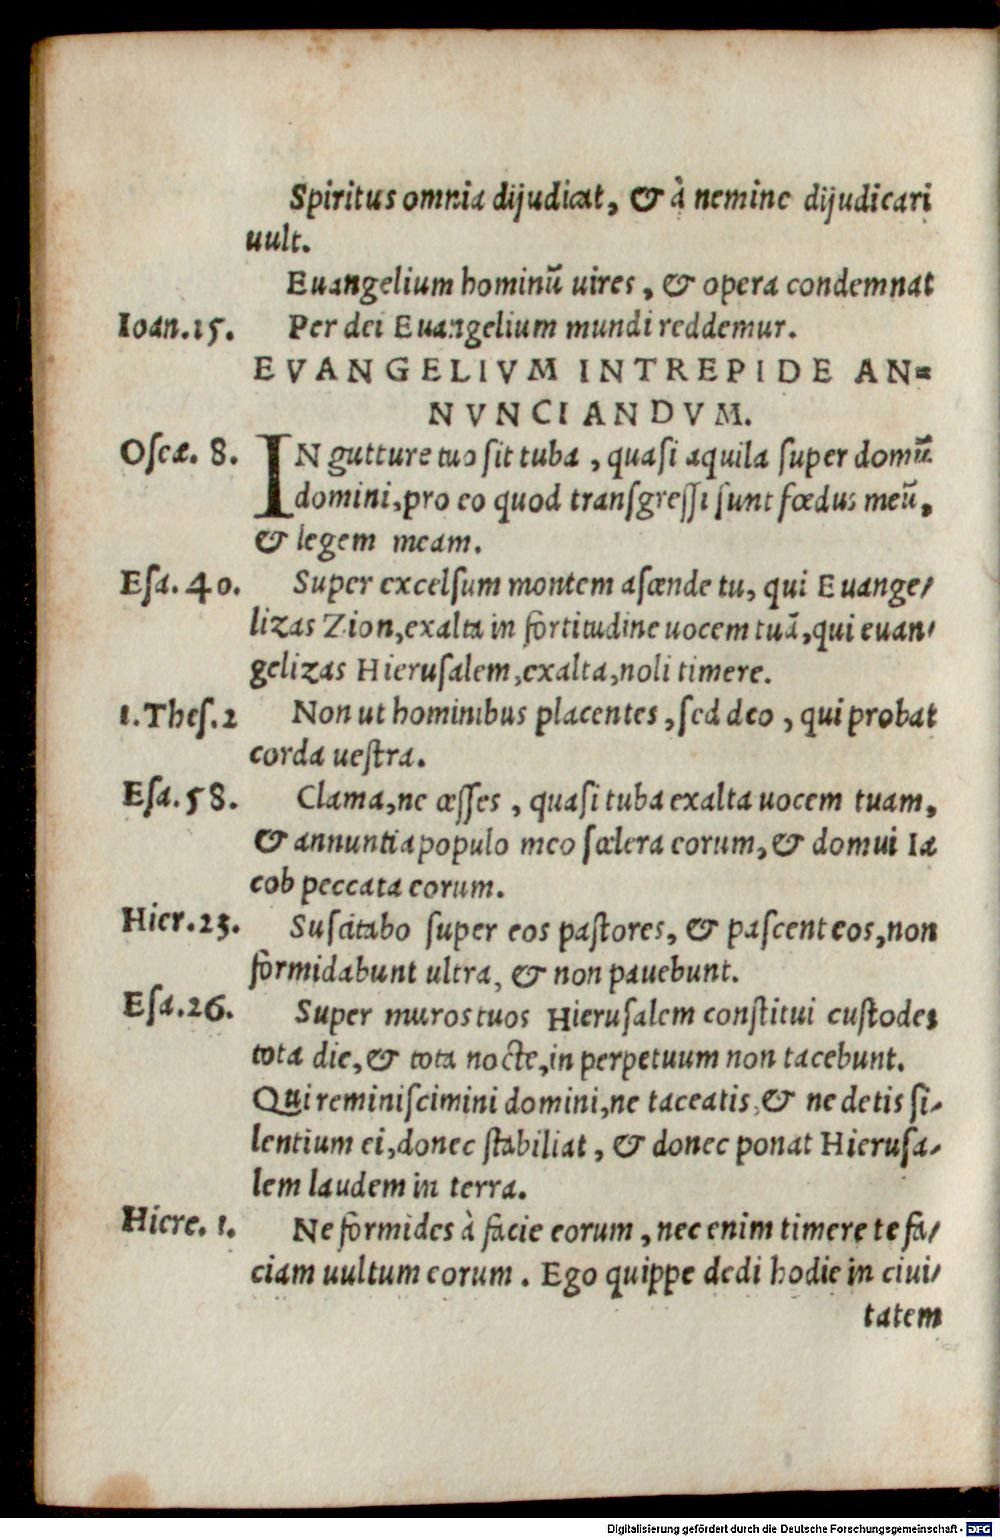 Spiritus omnia dijudicat, & à nemine dijudicari
uult.
Euangelium hominū uires, & opera condemnat
Ioan.15. Per dei Euangelium mundi reddemur.
EVANGELIVM INTREPIDE AN=
NVNCIANDVM.
Oseæ. 8. IN gutture tuo sit tuba, quasi aquila super domū
domini, pro eo quod transgressi sunt fœdus meū,
& legem meam.
Esa. 40. Super excelsum montem ascende tu, qui Euange/
lizas Zion, exalta in fortitudine uocem tuā, qui euan/
gelizas Hierusalem, exalta, noli timere.
1.Thes.2 Non ut hominibus placentes, sed deo, qui probat
corda uestra.
Esa.58. Clama, ne cesses, quasi tuba exalta uocem tuam,
& annuntia populo meo scelera eorum, & domui Ia
cob peccata eorum.
Hier.23. Suscitabo super eos pastores, & pascent eos, non
formidabunt ultra, & non pauebunt.
Esa.26. Super muros tuos Hierusalem constitui custodes
tota die, & tota nocte, in perpetuum non tacebunt.
Qui reminiscimini domini, ne taceatis, & ne detis si/
lentium ei, donec stabiliat, & donec ponat Hierusa/
lem laudem in terra.
Hiere. 1. Ne formides à facie eorum, nec enim timere te fa/
ciam uultum eorum. Ego quippe dedi hodie in ciui/
tatem
Digitalisierung gefördert durch die Deutsche Forschungsgemeinschaft - DFG